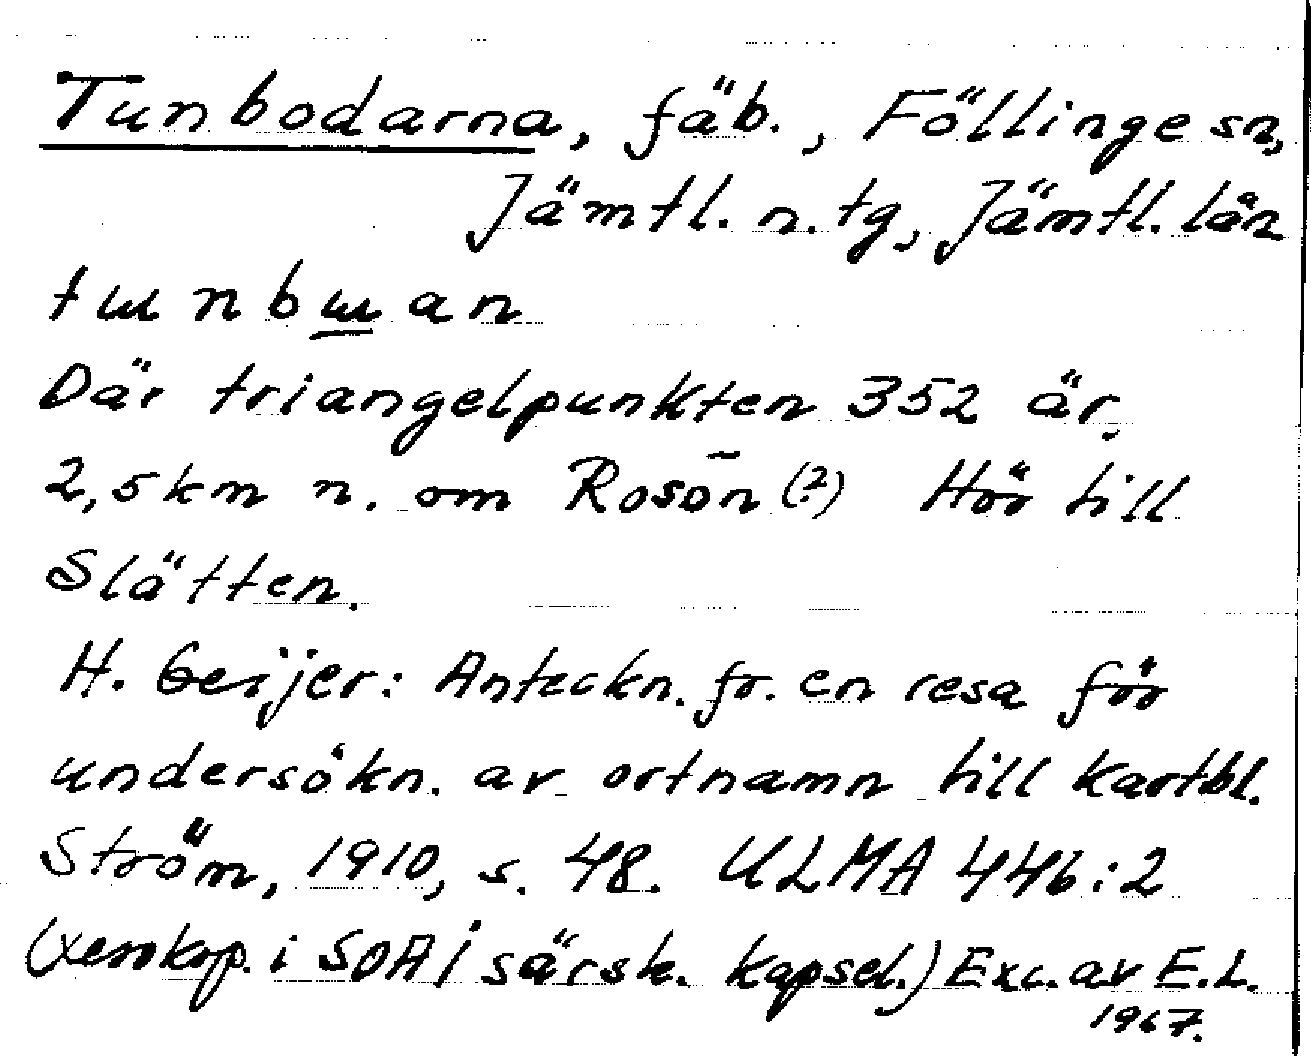 Tunbodarna, fäb., Föllinge sn,
Jämtl. n. tg, Jämtl. län
tɯnbɯan
Där triangelpunkten 352 är.
2,5 km n. om Rosōn (?) Hör till
Slätten.
H. Geijer: Anteckn. fr. en resa för
undersökn. av ortnamn till kartbl.
Ström, 1910, s. 48. ULMA 446:2
(xerokop. i SOA i särsk. kapsel.) Exc. av E.L.
1967.